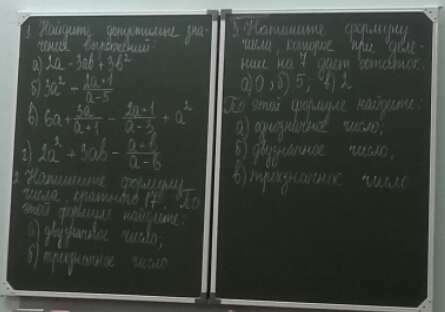 1. Найдите допустимые зна-
чения выражений:
а) 2a - 3ab + 3b²
б) 3a² - (2a+1)/(a-5)
в) 6a + 3a/(a+1) - (2a+1)/(a-3) + a²
г) 2a² + 3ab - (a+b)/(a-b)
2. Напишите формулу
числа, кратного 17. По
этой формуле найдите:
а) двузначное число;
б) трехзначное число
3. Напишите формулу
числа, которое при деле-
нии на 7 дает остаток:
а) 0; б) 5; в) 2
По этой формуле найдите:
а) однозначное число;
б) двузначное число;
в) трехзначное число